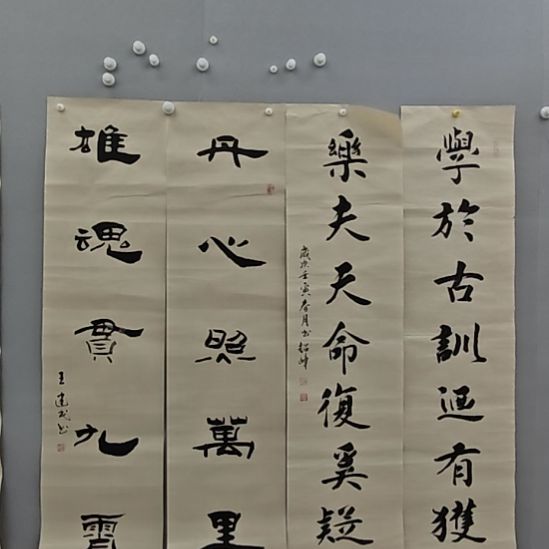 學於古訓迺有獲
樂夫天命復奚疑
歲次壬寅春月書
丹心照萬里
雄魂貫九霄